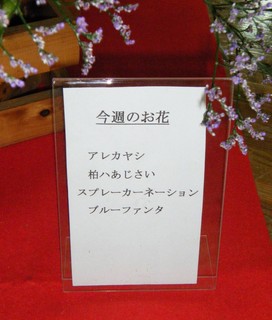 今週のお花
アレカヤシ
柏ハあじさい
スプレーカーネーション
ブルーファンタ